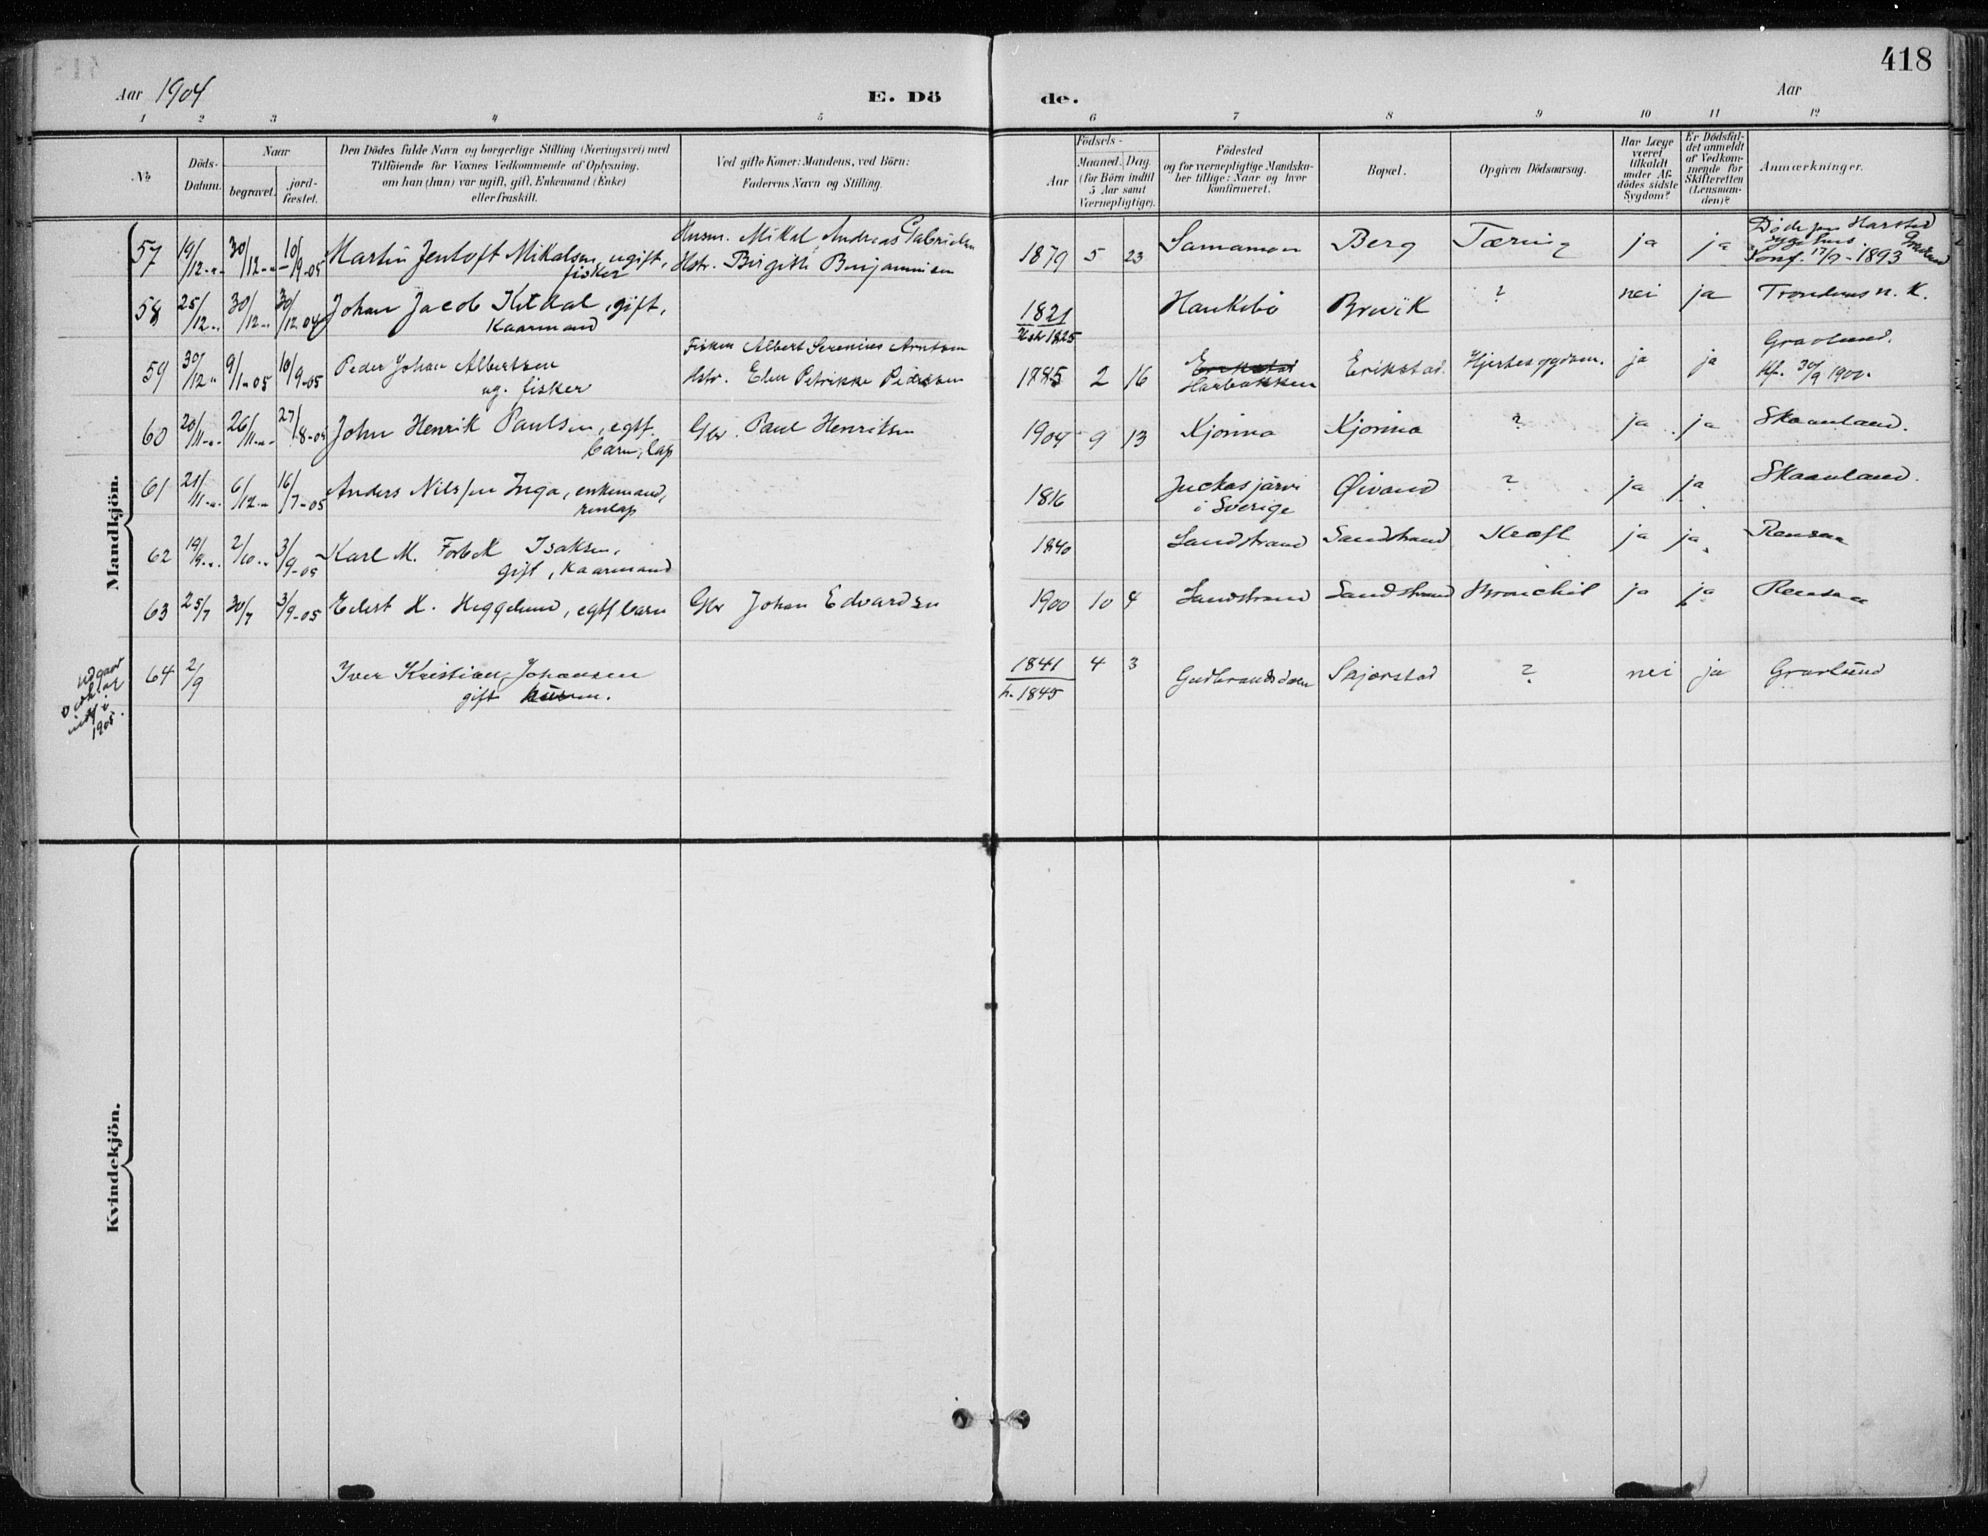 418
Aar 1904
E. Dö de.
Aar
1 2 3 4 5 6 7 8 9 10 11 12
No
Döds-Datum.
Naar
begravet.
jord-fæstet.
Den Dödes fulde Navn og borgerlige Stilling (Næringsvei) med
Tilföiende for Voxnes Vedkommende af Oplysning,
om han (hun) var ugift, gift, Enkemand (Enke)
eller fraskilt.
Ved gifte Koner: Mandens, ved Börn:
Faderens Navn og Stilling.
Födsels-
Aar
Maaned. Dag.
(for Börn indtil
5 Aar samt
Værnepligtige).
Födested
og for værnepligtige Mandska-
ber tillige: Naar og hvor
konfirmeret.
Bopæl.
Opgiven Dödsaarsag.
Har Læge
været
tilkaldt
under Af-
dödes sidste
Sygdom?
Er Dödsfal-
det anmeldt
af Vedkom-
mende for
Skifteretten
(Lensman-
den)?
Anmærkninger.
Mandkjön.
57 19/12 30/12 10/9-05 Martin Jentoft Mikalsen, ugift, fisker
Husm. Mikal Andreas Gabrielsen
Hstr. Birgith Benjaminsen
1879 5 23 Samamon Berg Tæring ja ja
Döde paa Harstad
sygehus. Gravlund
Konf. 17/9-1893
58 25/12 30/12 30/12 04 Johan Jacob Kildal, gift,
Kaarmand
1821
1825
Haukebö Brevik ? nei ja Trondenes n. K.
59 30/12 9/1-05 10/9-05 Peder Johan Albertsen
ug. fisker
Fisker Albert Serenius Arntsen
Hstr. Elen Petrikke Pedersen
1785 2 16 Erikstad
Haabakken
Erikstad Hjertesygdom. ja ja
Gravlund.
Kf. 30/9 1900.
60 20/11 26/11 27/8-05 John Henrik Paulsen, egtf.
barn, lap
Gbr. Paul Henriksen
1904 9 13 Kjönna Kjönna ? ja ja Skaanland.
61 21/11 6/12 16/7-05 Anders Nilssen Inga, enkemand,
renlap
1816 Juckasjärvi
i Sverige
Öivand ? ja ja Skaanland.
62 19/9 2/10 3/9-05 Karl M. Forbek Isaksen,
gift, Kaarmand
1840 Sandstrand Sandstrand Kræft ja ja Rensaa
63 25/7 30/7 3/9-05 Eilert H. Heggelund, egtf barn
Gbr Johan Edvardsen
1900 10 4 Sandstrand Sandstrand Bronchit ja ja Rensaa
64 2/9 Iver Kristian Johansen
gift husm.
1841
1845
4 3 Gudbrandsdalen Skjærstad ? nei ja Gravlund
udgaar
indf i
1905.
Kvindekjön.